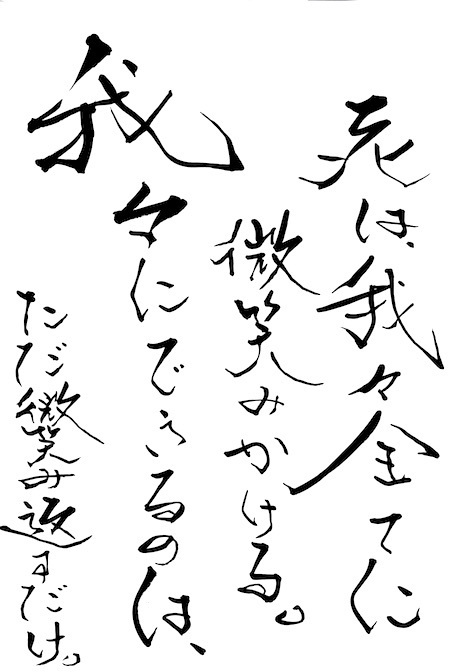 死は、我々全てに
微笑みかける。
我々にできるのは、
ただ微笑み返すだけ。